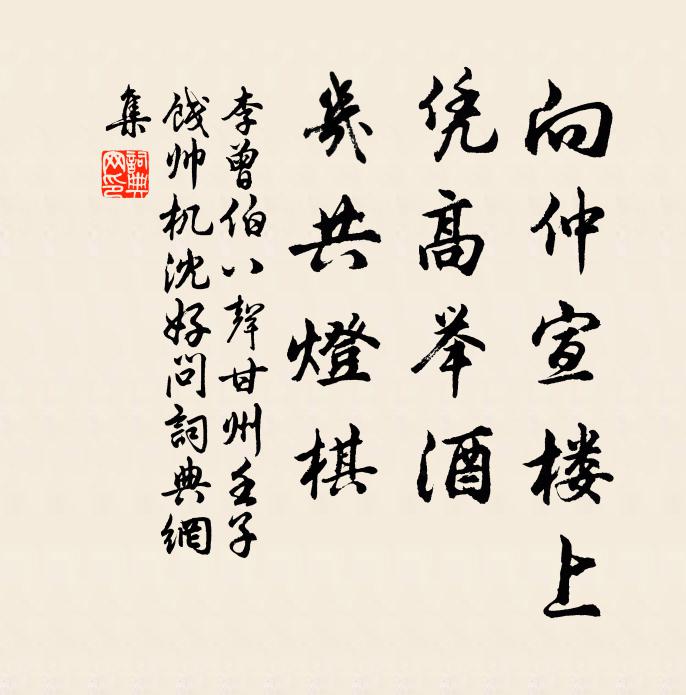 向仲宣楼上
凭高举酒
几共燈棋
李曾伯八聲甘州壬子
餞帅机沈好問詞典網
集
詞典网印